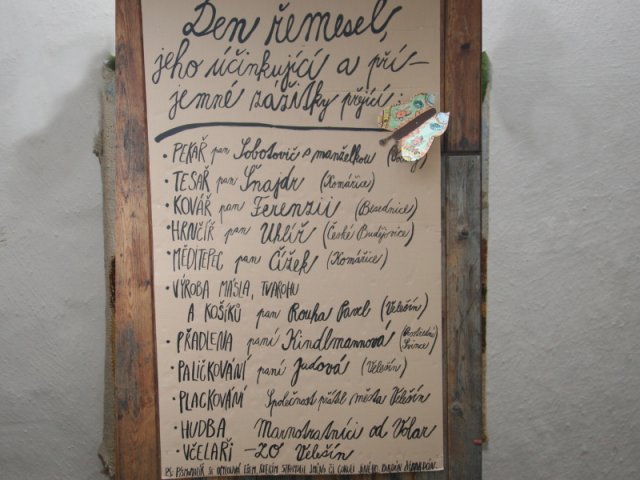 Den řemesel,
jeho účinkující a pří-
jemné zážitky přející:
• PEKAŘ pan Sobotovič s manželkou
• TESAŘ pan Šnajdr (Komářice)
• KOVÁŘ pan Ferenzii (Besednice)
• HRNČÍŘ pan Uhlíř (České Budějovice)
• MĚDITEPEC pan Čížek (Komářice)
• VÝROBA MÁSLA, TVAROHU
A KOŠÍKŮ pan Rouha Pavel (Velešín)
• PŘADLENA paní Kindlmannová (Prostřední Svince)
• PALIČKOVÁNÍ paní Judová (Velešín)
• PLACKOVÁNÍ Společnost přátel města Velešín
• HUDBA Marnotratníci od Volar
• VČELAŘI -ZO Velešín
PS: PÍSMOMALÍŘ SE OMLOUVÁ VŠEM, KTERÝM